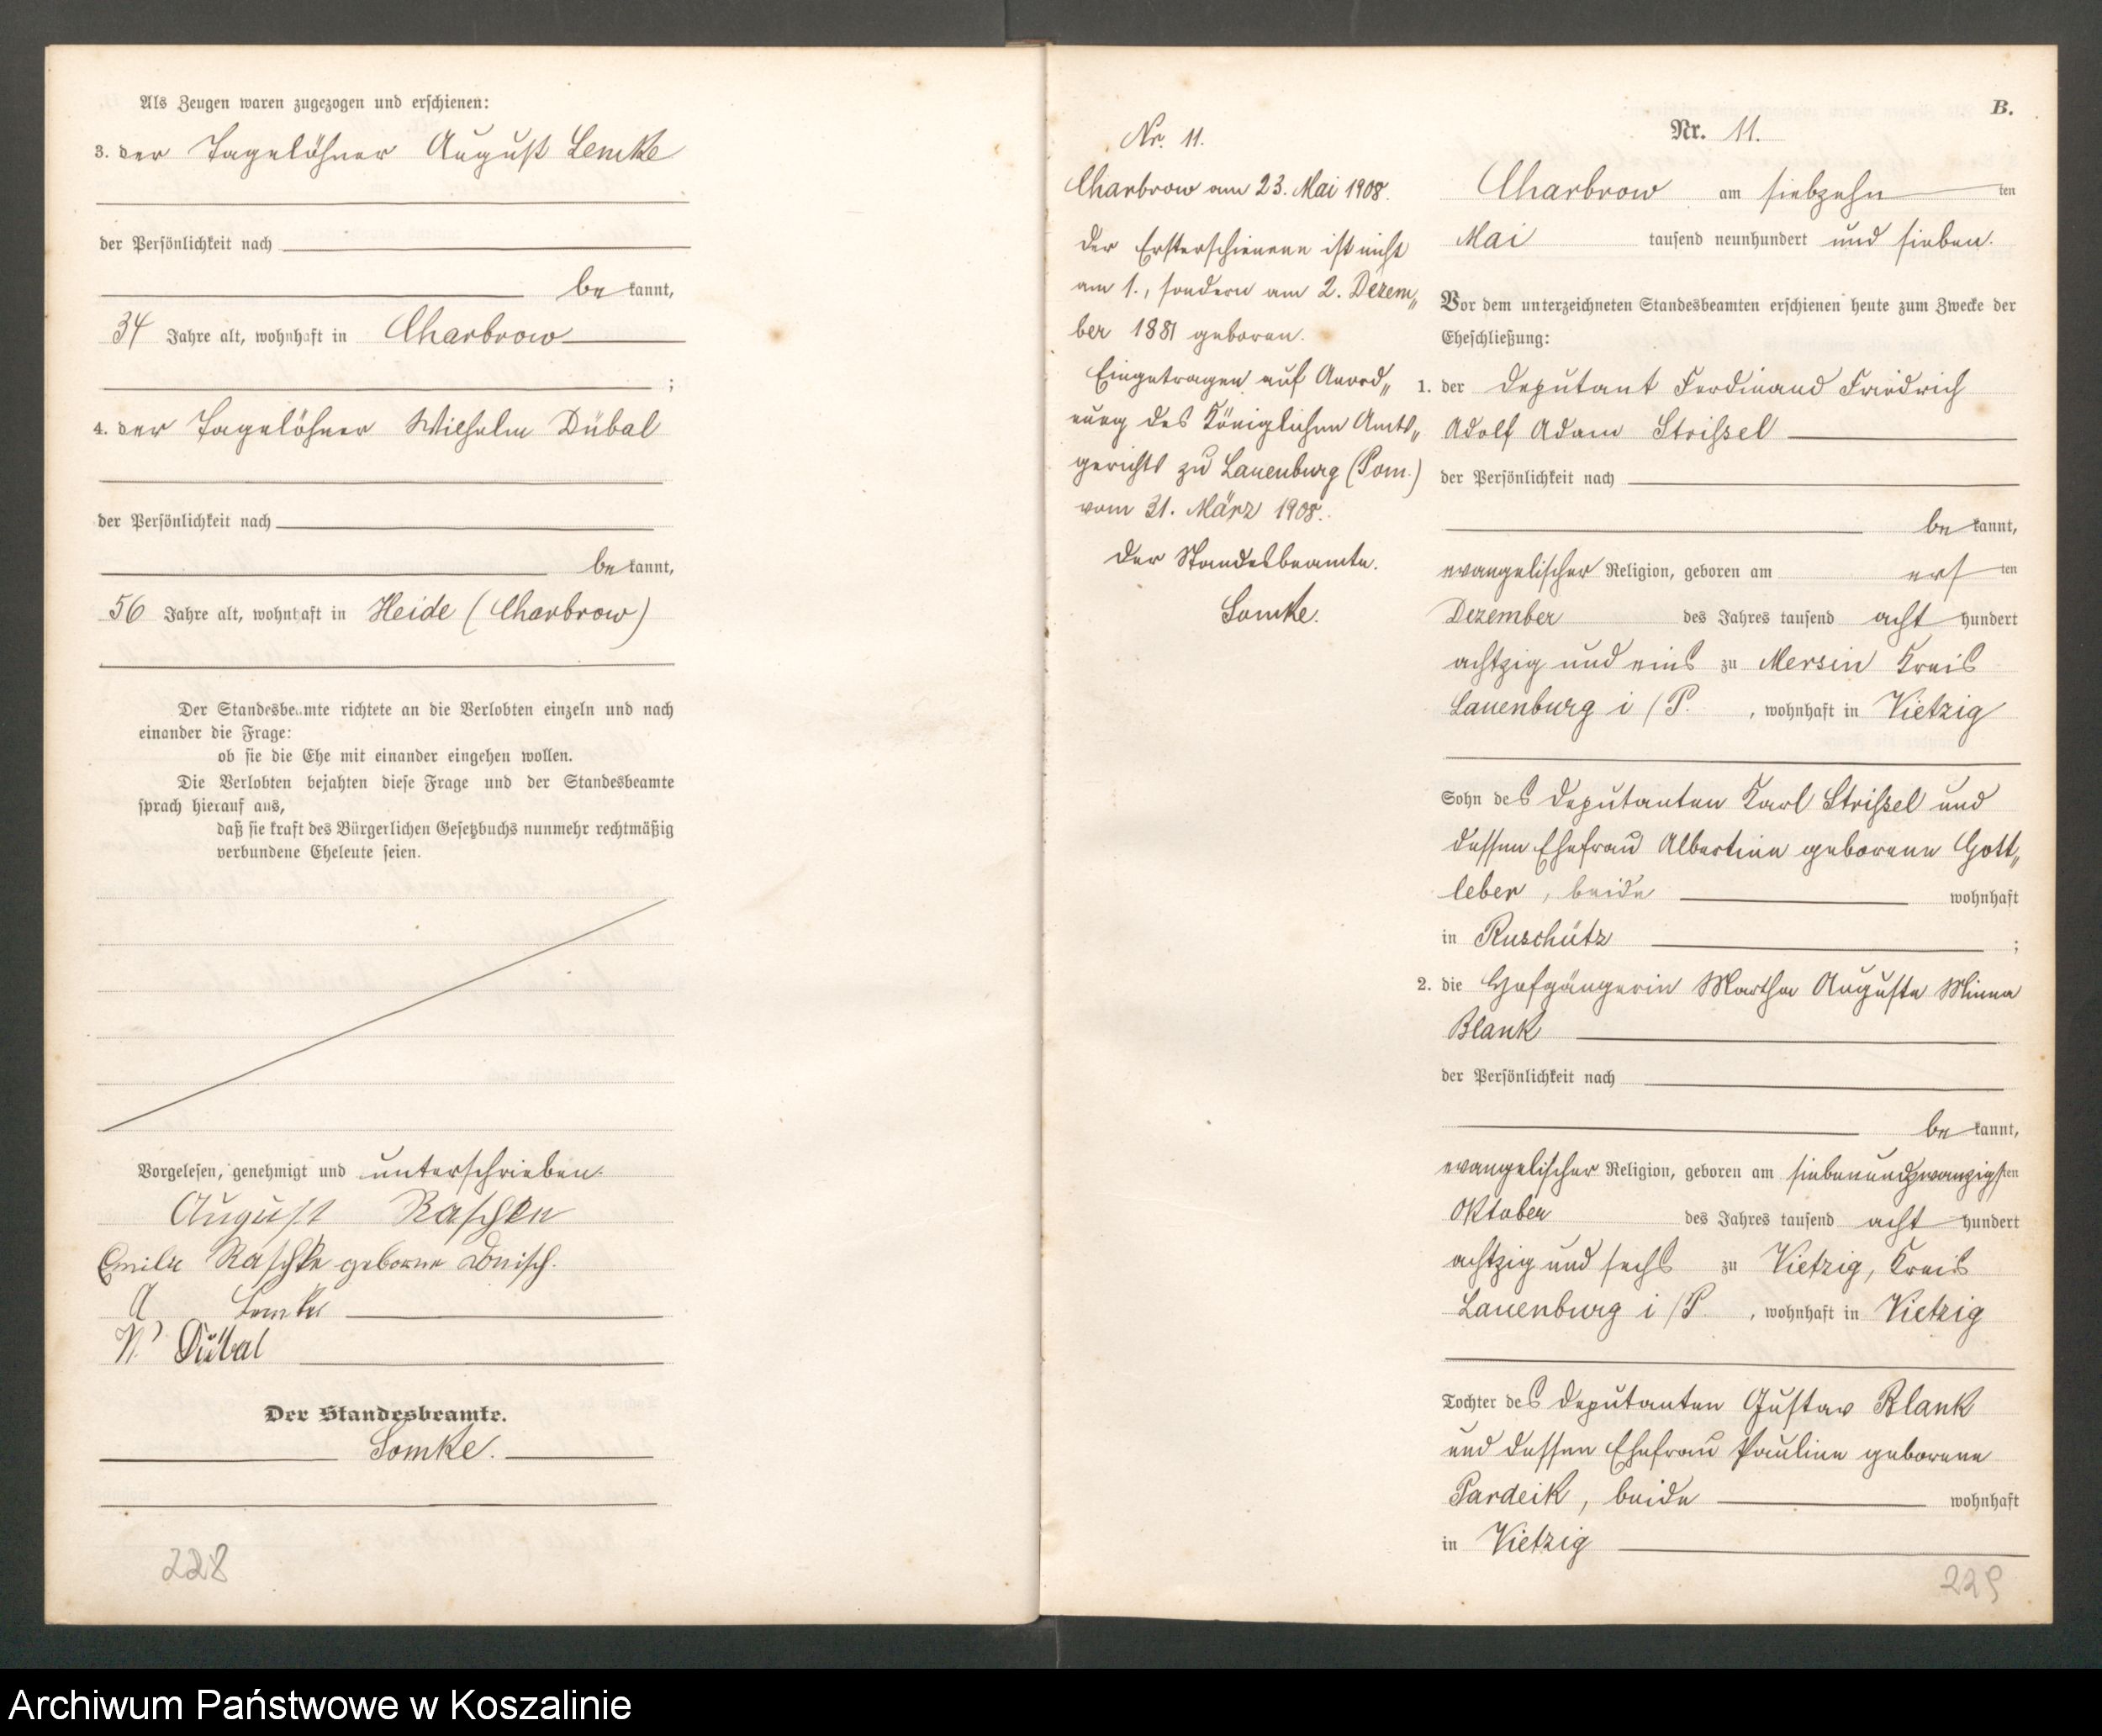 Als Zeugen waren zugezogen und erschienen:
3. der Tagelöhner August Lemke
der Persönlichkeit nach
be kannt,
34 Jahre alt, wohnhaft in Charbrow
;
4. der Tagelöhner Wilhelm Dübal
der Persönlichkeit nach
be kannt,
56 Jahre alt, wohnhaft in Heide (Charbrow)
Der Standesbeamte richtete an die Verlobten einzeln und nach
einander die Frage:
ob sie die Ehe mit einander eingehen wollen.
Die Verlobten bejahten diese Frage und der Standesbeamte
sprach hierauf aus,
daß sie kraft des Bürgerlichen Gesetzbuchs nunmehr rechtmäßig
verbundene Eheleute seien.
Vorgelesen, genehmigt und unterschrieben.
August Raschke
Emilie Raschke geborne
A Lemke
W Dübal
Der Standesbeamte.
Somke.
228
Nr. 11.
Charbrow am 23. Mai 1908.
Der Ersterschienene ist nicht
am 1., sondern am 2. Dezem„
ber 1881 geboren.
Eingetragen auf Anord„
nung des Königlichen Amts„
gerichts zu Lauenburg (Pom.)
vom 31. März 1908.
Der Standesbeamte.
Somke.
B.
Nr. 11.
Charbrow am siebzehn ten
Mai tausend neunhundert und sieben.
Vor dem unterzeichneten Standesbeamten erschienen heute zum Zwecke der
Eheschließung:
1. der Deputant Ferdinand Friedrich
Adolf Adam Strißel
der Persönlichkeit nach
be kannt,
evangelischer Religion, geboren am ers ten
Dezember des Jahres tausend acht hundert
achtzig und eins zu Mersin Kreis
Lauenburg i/P. , wohnhaft in Vietzig
Sohn des Deputanten Karl Strißel und
dessen Ehefrau Albertine geborene Gott„
leber, beide wohnhaft
in Ruschütz ;
2. die Hofgängerin Martha Auguste Minna
Blank
der Persönlichkeit nach
be kannt,
evangelischer Religion, geboren am siebenundzwanzigsten
Oktober des Jahres tausend acht hundert
achtzig und sechs zu Vietzig, Kreis
Lauenburg i/P. , wohnhaft in Vietzig
Tochter des Deputanten Gustav Blank
und dessen Ehefrau Pauline geborene
Pardeik, beide wohnhaft
in Vietzig
229
Archiwum Państwowe w Koszalinie